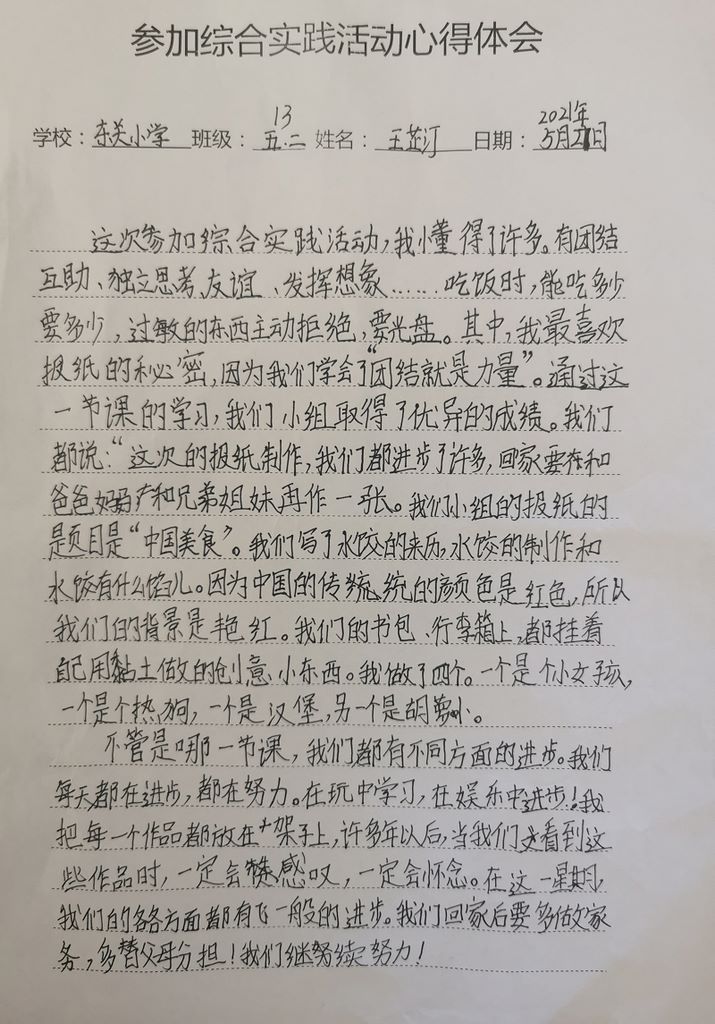 参加综合实践活动心得体会
13
2021年
学校：东关小学 班级：五.二 姓名：王芷汀 日期：5月21日
这次参加综合实践活动，我懂得了许多。有团结
互助、独立思考、友谊、发挥想象……吃饭时，能吃多少
要多少，过敏的东西主动拒绝，要光盘。其中，我最喜欢
报纸的秘密，因为我们学会了“团结就是力量”。通过这
一节课的学习，我们小组取得了优异的成绩。我们
都说：“这次的报纸制作，我们都进步了许多，回家要在和
爸爸妈妈和兄弟姐妹再作一张。我们小组的报纸的
是题目是“中国美食”。我们写了水饺的来历，水饺的制作和
水饺有什么馅儿。因为中国的传统统的颜色是红色，所以
我们的背景是艳红。我们的书包、行李箱上，都挂着
自己用黏土做的创意小东西。我做了四个。一个是个小女孩，
一个是个热狗，一个是汉堡，另一个是胡萝小。
不管是哪一节课，我们都有不同方面的进步。我们
每天都在进步，都在努力。在玩中学习，在娱乐中进步！我
把每一个作品都放在架子上，许多年以后，当我们看到这
些作品时，一定会感叹，一定会怀念。在这一星期，
我们的各各方面都有飞一般的进步。我们回家后要多做家
务，多替父母分担！我们继努续努力！